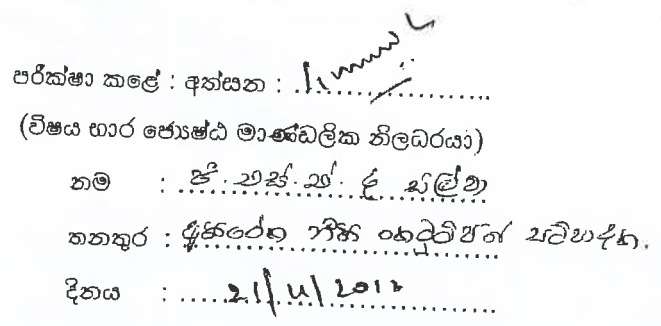 පරීක්ෂා කළේ : අත්සන : ....................
(විෂය භාර ජ්‍යෙෂ්ඨ මාණ්ඩලික නිලධරයා)
නම : ජී. එස්. එ. ද සිල්වා
තනතුර : අතිරේක නීති කෙටුම්පත් සම්පාදක.
දිනය :